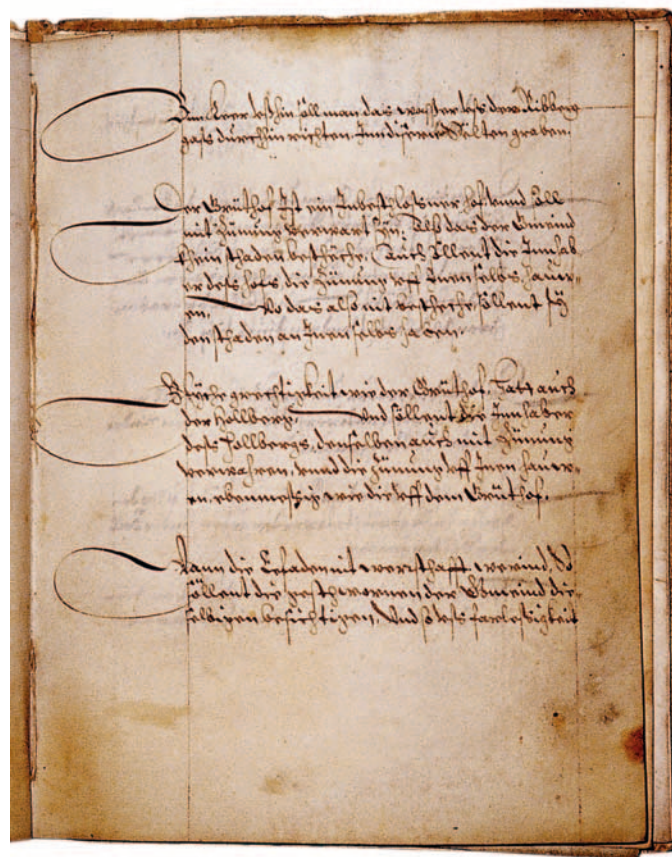 Ein Keer desshin söll man das wasser dess der Ribberg
gass durchhin richten. Inn disere Velten graben.
Der Grüthof Ist ein Inbeschlossner hof, vnnd söll
mit Zünung verwart syn, Allso das der Gmeind
khein schaden bescheche, Auch söllent die Innhab¬
er dess hofs die Zünung vff Inen selbs hauw¬
en, Wo das also nit bescheche, söllent sy
den schaden an Inen selbs haben.
Glyche grechtigkeit wie der Grüthof, Hatt auch
der Hollberg, vnd söllent die Innhaber
dess Hollbergs, denselben auch mit Zünung
verwahren, vnnd die Zünung vff Inen hauw¬
en, ebenmessig wie die vff dem Grüthof.
Wann die Eefaden nit werschafft werind, So
söllent die geschwornen der Gmeind die¬
selbigen besichtigen, Vnd so dess farlessigkeit